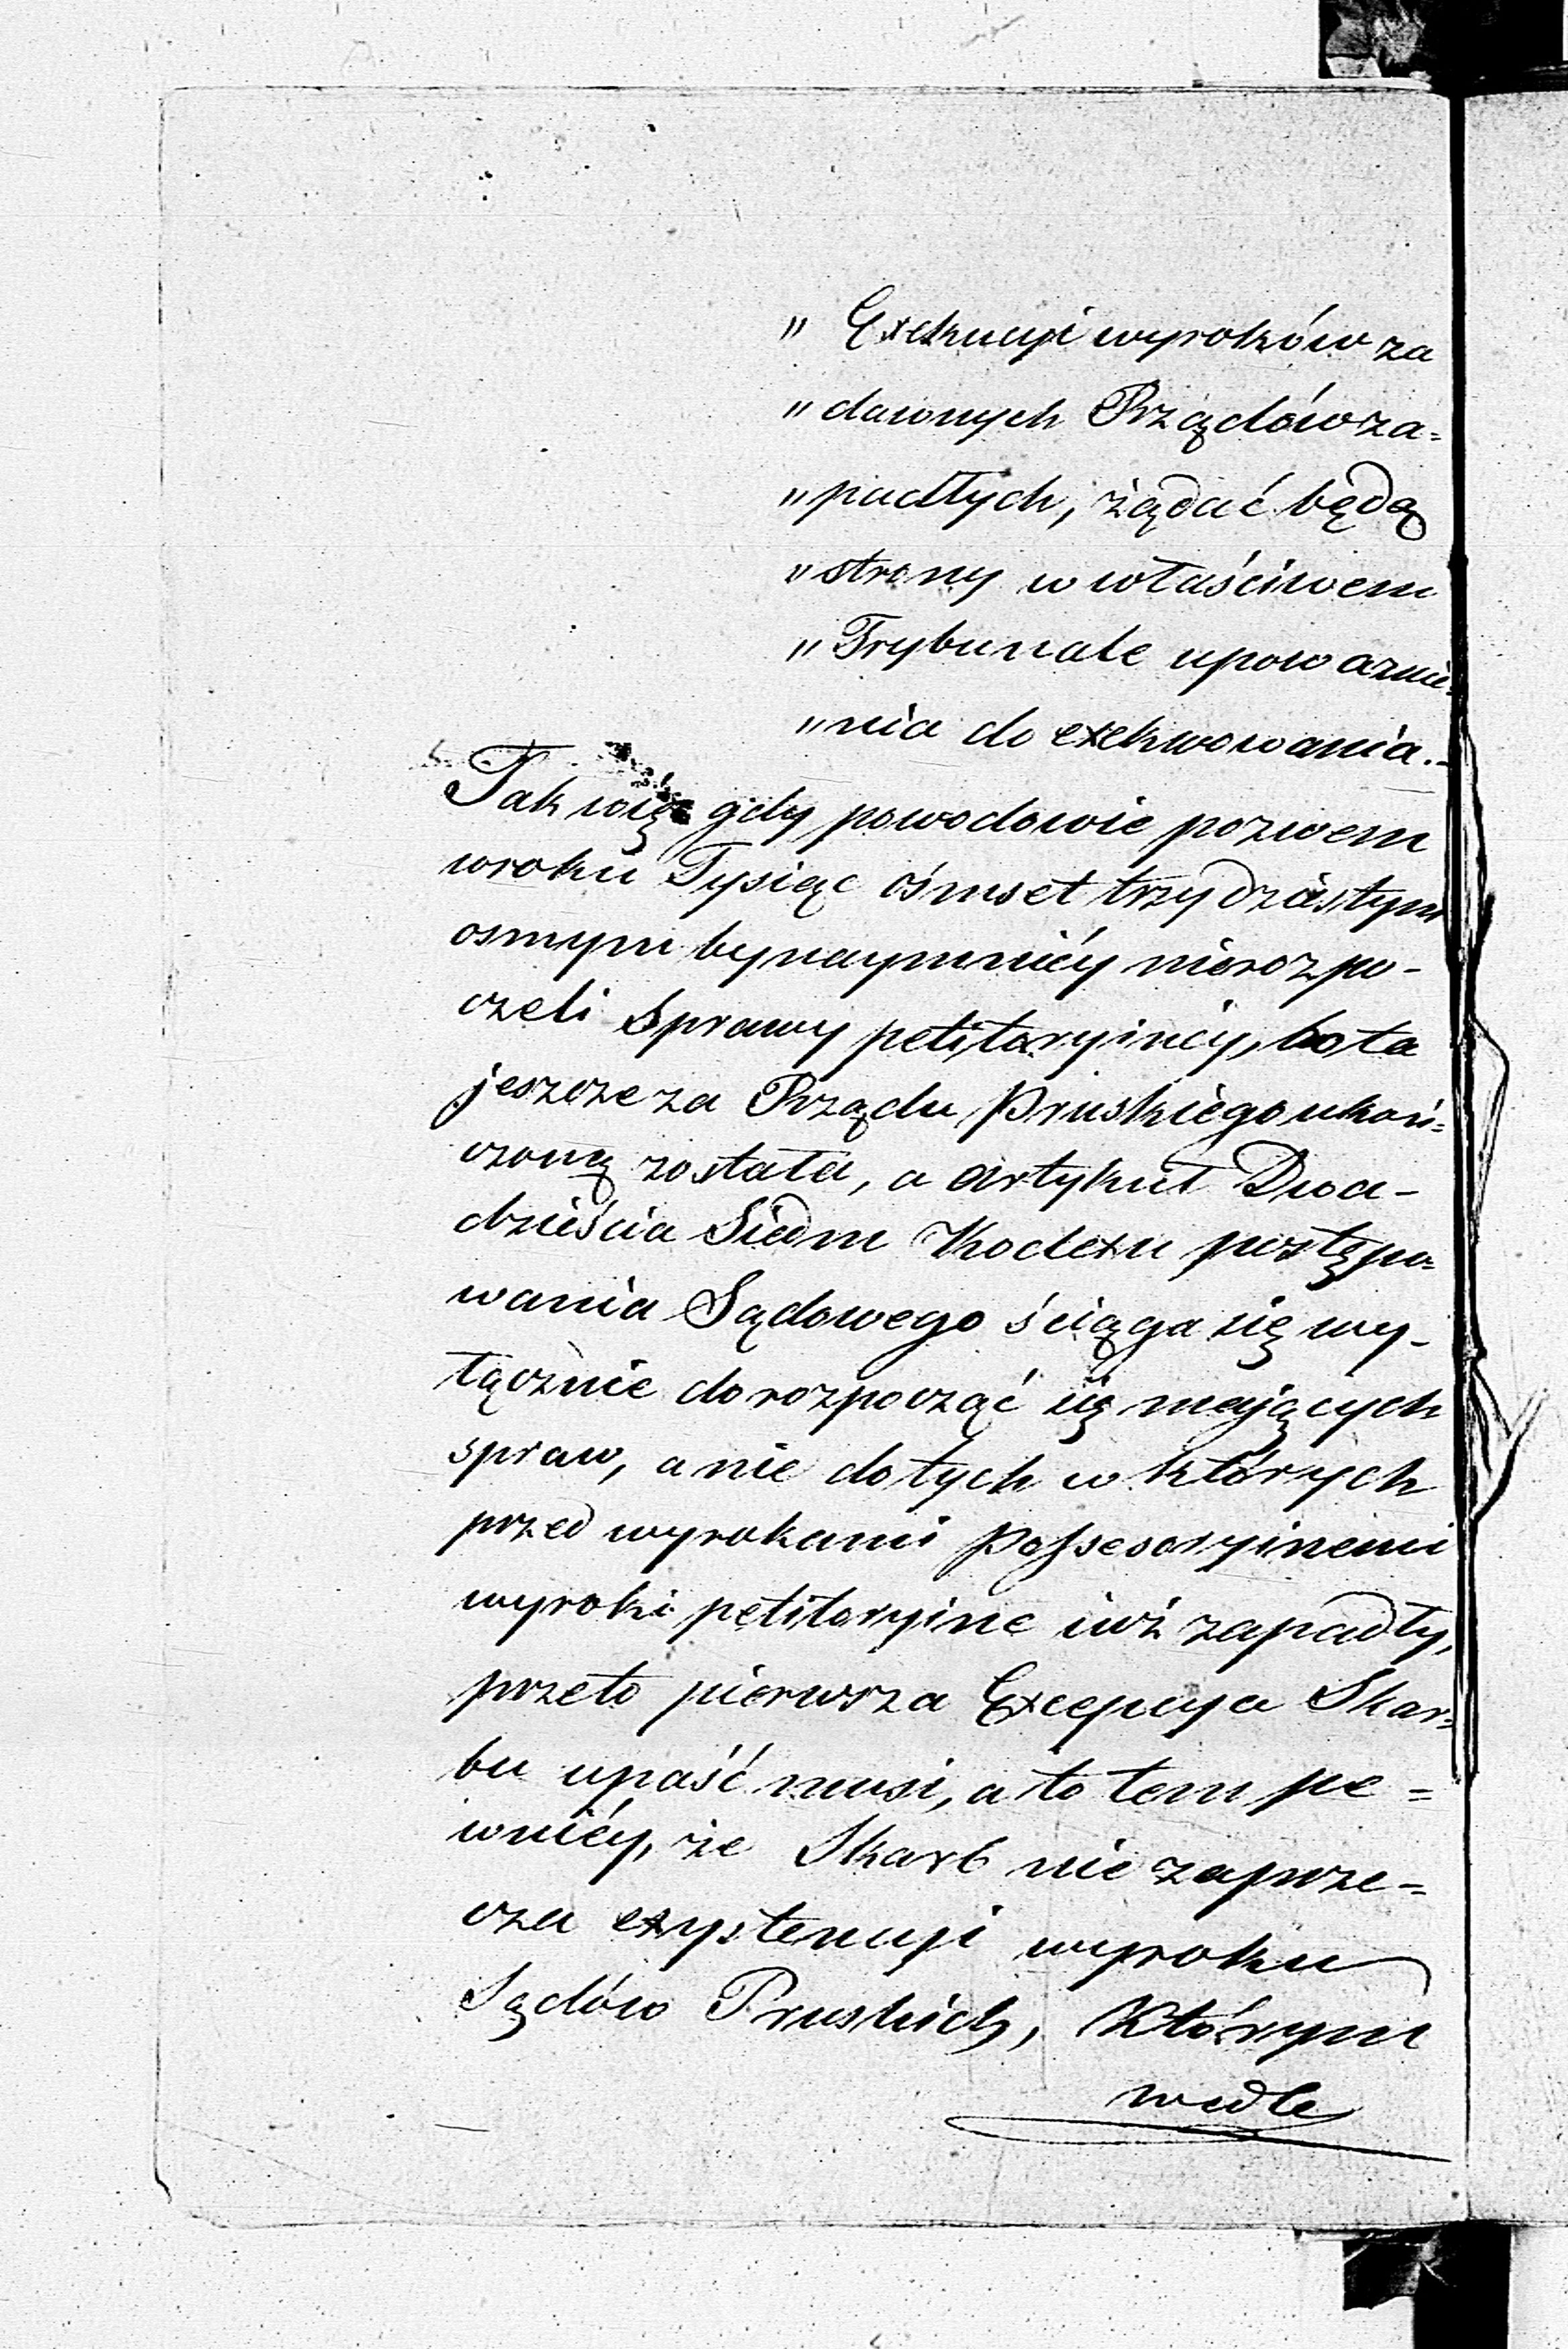 „ Exekucyi wyroków za
„ dawnych Rządów za=
„ padłych, żądać będą
„ strony w właściwem
„ Trybunale upoważnie=
„ nia do exekwowania.-
Tak więc gdy powodowie pozwem
w roku Tysiąc ośmset trzydziestym
osmym bynaymniéy nierozpo-
czeli Sprawy petitoryinéy, bo ta
jeszcze za Rządu Pruskiego ukoń=
czoną została, a artykuł Dwa-
dzieścia Siedm Kodexu postępo=
wania Sądowego ściąga się wy-
łącznie do rozpocząć się mających
spraw, a nie do tych w których
przed wyrokami possesoryinemi
wyroki petitoryine iuż zapadły,
przeto pierwsza Excepcya Skar=
bu upaść musi, a to tem pe=
wniéy, że Skarb nie zaprze=
cza exystencyi wyroku
Sądów Pruskich, którym
wedle